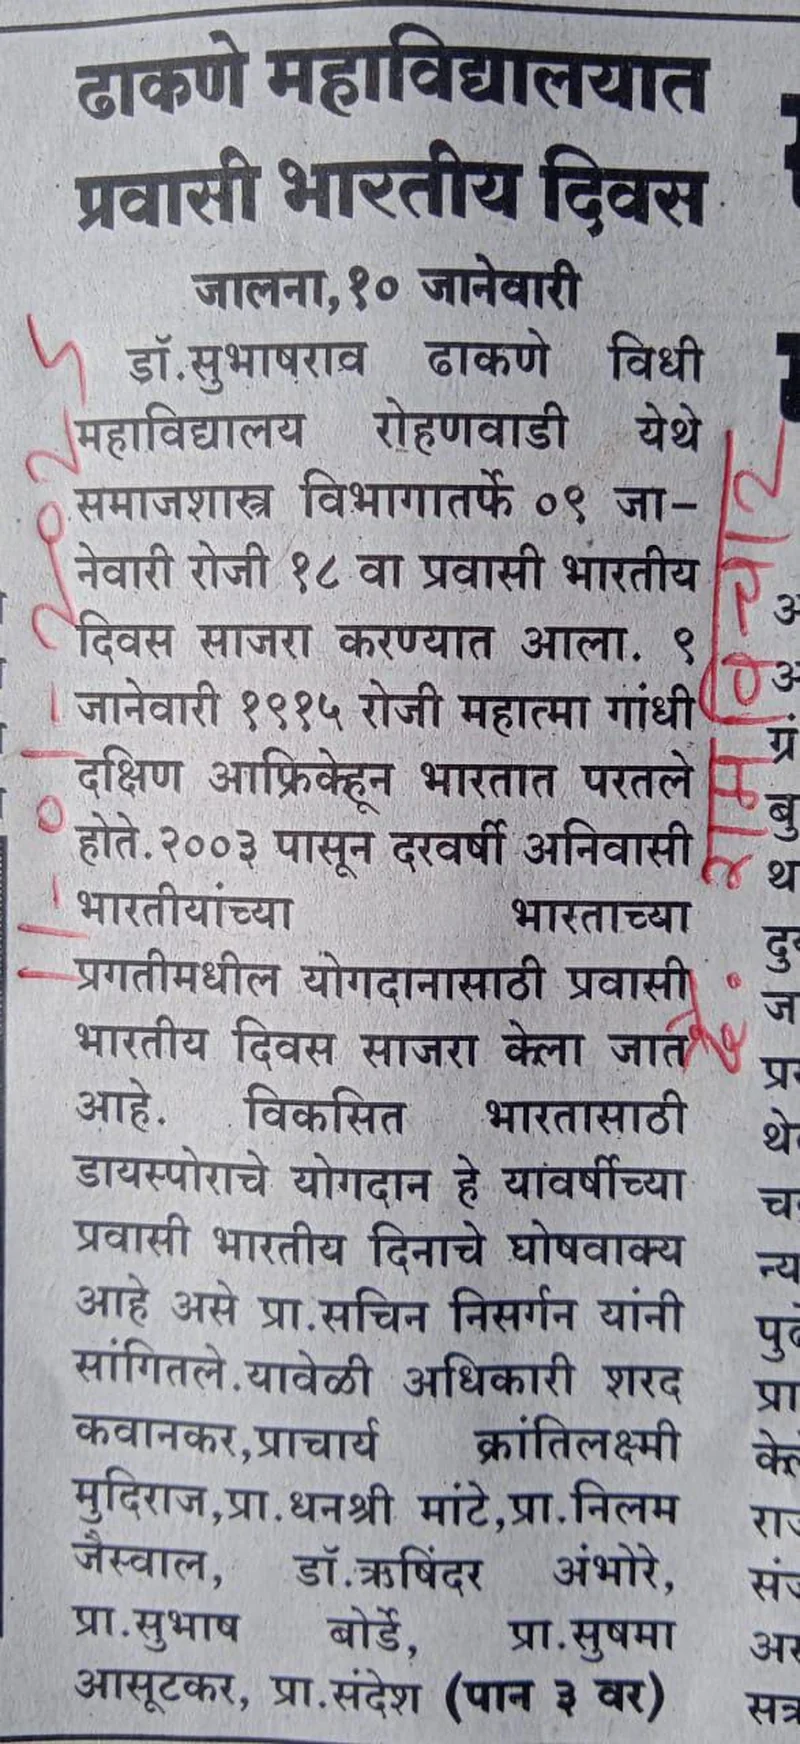 ढाकणे महाविद्यालयात
प्रवासी भारतीय दिवस
जालना,१० जानेवारी
डॉ.सुभाषराव ढाकणे विधी
महाविद्यालय रोहणवाडी येथे
समाजशास्त्र विभागातर्फे ०९ जा-
नेवारी रोजी १८ वा प्रवासी भारतीय
दिवस साजरा करण्यात आला. ९
जानेवारी १९१५ रोजी महात्मा गांधी
दक्षिण आफ्रिकेहून भारतात परतले
होते.२००३ पासून दरवर्षी अनिवासी
भारतीयांच्या भारताच्या
प्रगतीमधील योगदानासाठी प्रवासी
भारतीय दिवस साजरा केला जात
आहे. विकसित भारतासाठी
डायस्पोराचे योगदान हे यावर्षीच्या
प्रवासी भारतीय दिनाचे घोषवाक्य
आहे असे प्रा.सचिन निसर्गन यांनी
सांगितले.यावेळी अधिकारी शरद
कवानकर,प्राचार्य क्रांतिलक्ष्मी
मुदिराज,प्रा.धनश्री मांटे,प्रा.निलम
जैस्वाल, डॉ.ऋषिंदर अंभोरे,
प्रा.सुभाष बोर्डे, प्रा.सुषमा
आसूटकर, प्रा.संदेश (पान ३ वर)
11-01-2025
दै. रामविचार